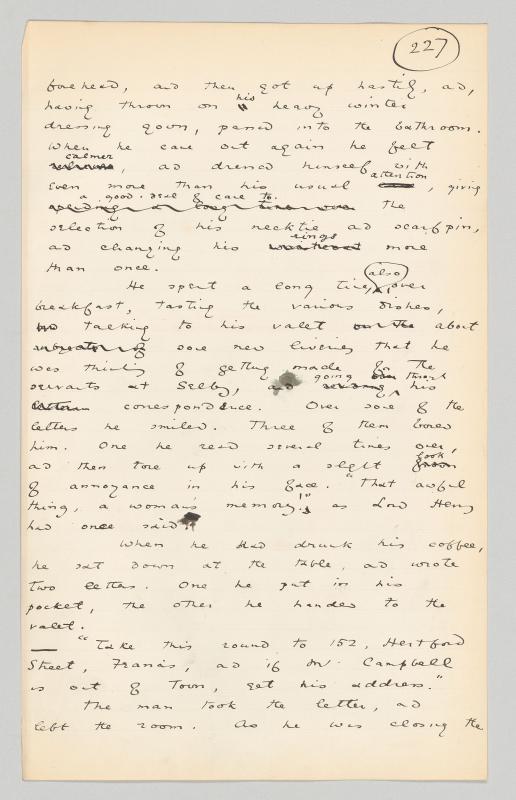 227
forehead, and then got up hastily, and,
having thrown on his heavy winter
dressing gown, passed into the bathroom.
When he came out again he felt
calmer, and dressed himself with
even more than his usual attention, giving
a good deal of care to the
selection of his necktie and scarf pin,
and changing his rings more
than once.
He spent a long time also over
breakfast, tasting the various dishes,
talking to his valet about
some new liveries that he
was thinking of getting made for the
servants at Selby, and going through his
correspondence. Over some of the
letters he smiled. Three of them bored
him. One he read several times over,
and then tore up with a slight look
of annoyance in his face. "That awful
thing, a woman's memory!" as Lord Henry
had once said.
When he had drunk his coffee,
he sat down at the table, and wrote
two letters. One he put in his
pocket, the other he handed to the
valet.
"Take this round to 152, Hertford
Street, Francis, and if Mr Campbell
is out of Town, get his address."
The man took the letter, and
left the room. As he was closing the